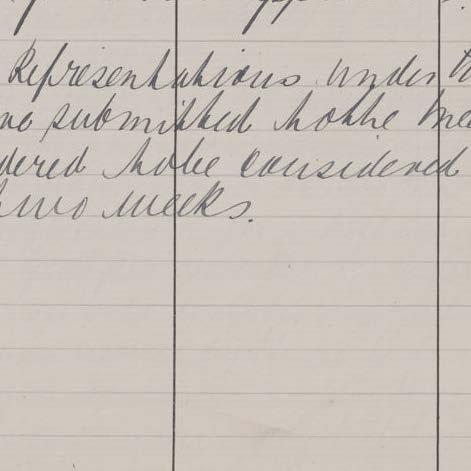 Representations under th
submitted to the me
dered to be considered
two weeks.